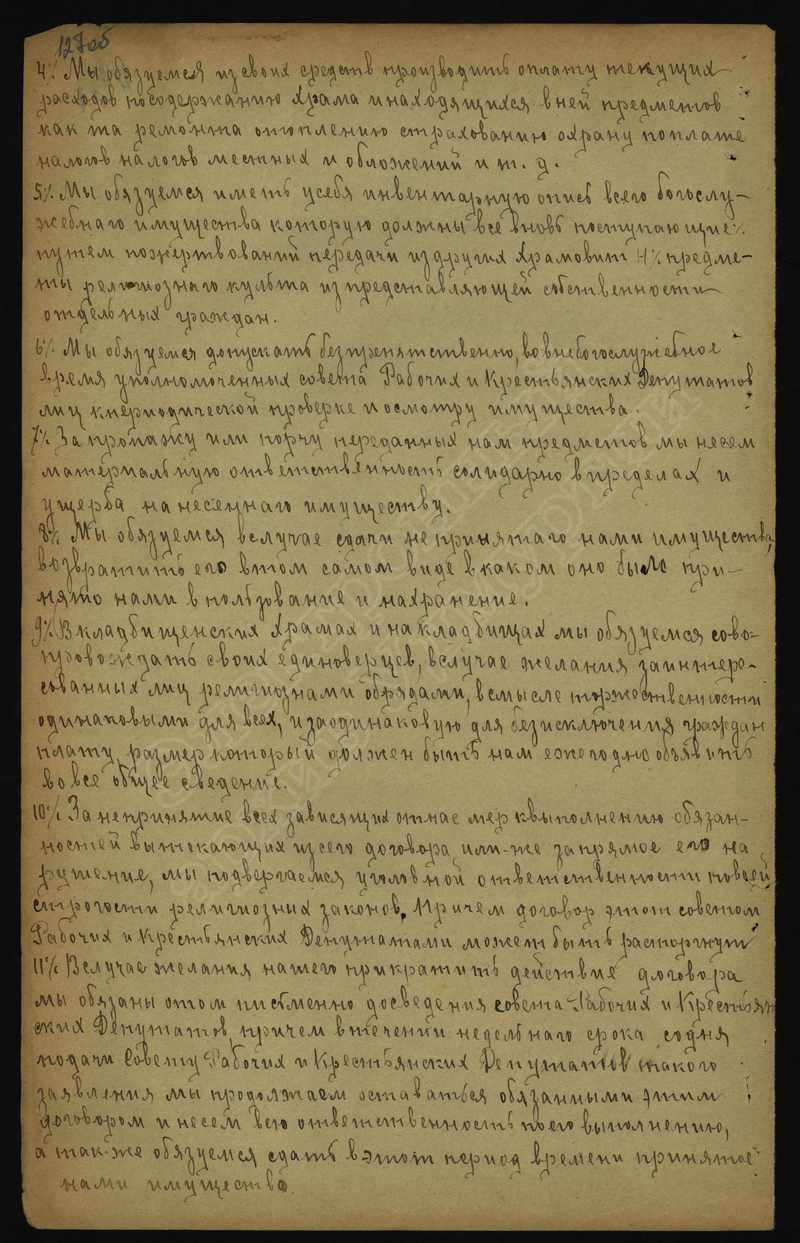 127об
4% Мы обязуемся из своих средств производить оплату текущих
расходов по содержанию храма и находящихся в ней предметов
как та ремонта отоплению страхованию охрану по плате
налогов налогов местных и обложений и т. д.
5% Мы обязуемся иметь у себя инвентарную опись всего богослу-
жебнаго имущества которую должны все вновь поступающие
путем пожертвований передачи из других храмов и т 4% предме-
ты религиознаго культа из представляющей собственности
отдельных граждан.
6% Мы обязуемся допускать безпрепятственно, во внебогослужебное
время уполномоченных совета Рабочих и Крестьянских Депутатов
лиц к периодической проверке и осмотру имущества.
7% За пропажу или порчу переданных нам предметов мы несем
материальную ответственность солидарно в пределах и
ущерба нанесеннаго имуществу.
8% Мы обязуемся в случае сдачи не принятаго нами имущества,
возвратить его в том самом виде в каком оно было при-
нято нами в пользование и на хранение.
9% В кладбищенских храмах и на кладбищах мы обязуемся сово-
провождать своих единоверцев, в случае желания заинтере-
сованных лиц религиознами обрядами, в смысле торжественности
одинаковыми для всех, и за одинаковую для без исключения граждан
плату, размер который должен быть нам ежегодно объявить
во все общее сведение.
10% За непринятие всех зависящих от нас мер к выполнению обязан-
ностей вытекающих из сего договора или-же за прямое его на
рушение, мы подвергаемся уголовной ответственности по всей
строгости религиозных законов. Причем договор этот советом
Рабочих и Крестьянских Депутатами может быть расторгнут
11% В случае желания нашего прикратить действие договора
мы обязаны о том письменно до сведения совета Рабочих и Крестьян
ских Депутатов, причем в течении недельнаго срока со дня
подачи Совету Рабочих и Крестьянских Депутатов такого
заявления мы продолжаем оставаться обязанными этим
договором и несем всю ответственность по его выполнению,
а так-же обязуемся сдать в этот период времени принятое
нами имущество.